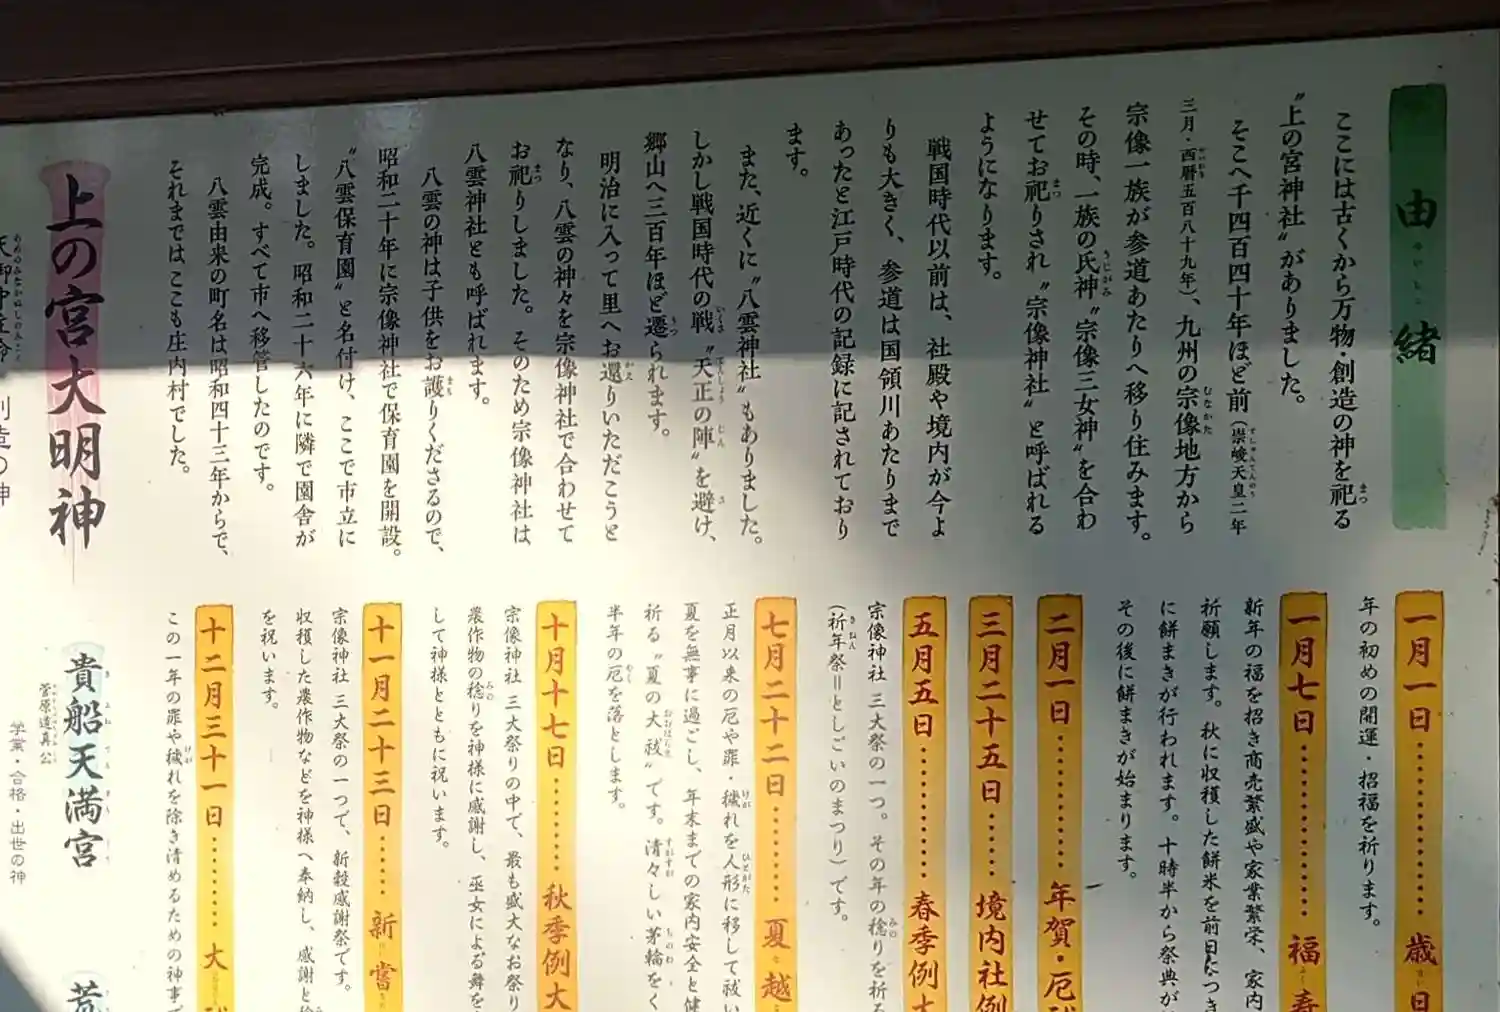 由緒
ここには古くから万物・創造の神を祀る
〝上の宮神社〟がありました。
そこへ千四百四十年ほど前(崇峻天皇二年
三月・西暦五百八十九年)、九州の宗像地方から
宗像一族が参道あたりへ移り住みます。
その時、一族の氏神〝宗像三女神〟を合わ
せてお祀りされ〝宗像神社〟と呼ばれる
ようになります。
戦国時代以前は、社殿や境内が今よ
りも大きく、参道は国領川あたりまで
あったと江戸時代の記録に記されており
ます。
また、近くに〝八雲神社〟もありました。
しかし戦国時代の戦〝天正の陣〟を避け、
郷山へ三百年ほど遷られます。
明治に入って里へお還りいただこうと
なり、八雲の神々を宗像神社で合わせて
お祀りしました。そのため宗像神社は
八雲神社とも呼ばれます。
八雲の神は子供をお護りくださるので、
昭和二十年に宗像神社で保育園を開設。
〝八雲保育園〟と名付け、ここで市立に
しました。昭和二十六年に隣で園舎が
完成。すべて市へ移管したのです。
八雲由来の町名は昭和四十三年からで、
それまではここも庄内村でした。
上の宮大明神
一月一日 歳旦
年の初めの開運・招福を祈ります。
一月七日 福寿
新年の福を招き商売繁盛や家業繁栄、家内
祈願します。秋に収穫した餅米を前日につき
に餅まきが行われます。十時半から祭典が
その後に餅まきが始まります。
二月一日 年賀・厄
三月二十五日 境内社例
五月五日 春季例大
宗像神社 三大祭の一つ。その年の稔りを祈る
(祈年祭=としごいのまつり)です。
七月二十二日 夏越
正月以来の厄や罪・穢れを人形に移して祓い
夏を無事に過ごし、年末までの家内安全と健
祈る〝夏の大祓〟です。清々しい茅輪をく
半年の厄を落とします。
十月十七日 秋季例大
宗像神社 三大祭りの中で、最も盛大なお祭り
農作物の稔りを神様に感謝し、巫女による舞を
して神様とともに祝います。
十一月二十三日 新嘗
宗像神社 三大祭の一つで、新穀感謝祭です。
収穫した農作物などを神様へ奉納し、感謝と
を祝います。
十二月三十一日 大
この一年の罪や穢れを除き清めるための神事
貴船天満宮
菅原道真公
学業・合格・出世の神